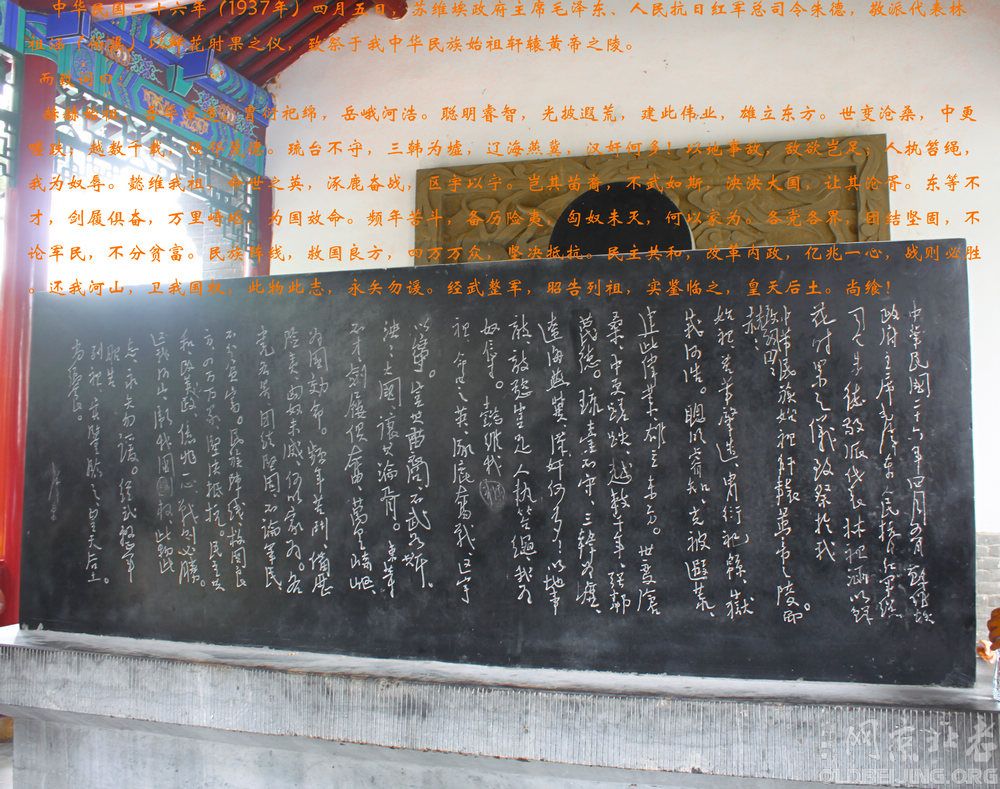 中华民国二十六年（1937年）四月五日，苏维埃政府主席毛泽东、人民抗日红军总司令朱德，敬派代表林
祖涵（伯渠）以鲜花时果之仪，致祭于我中华民族始祖轩辕黄帝之陵。
而致词曰：
赫赫始祖，吾华肇造。胄衍祀绵，岳峨河浩。聪明睿智，光披遐荒，建此伟业，雄立东方。世变沧桑，中更
蹉跌，越数千载，强邻蔑德。琉台不守，三韩为墟，辽海燕冀，汉奸何多！以地事敌，敌欲岂足，人执笞绳，
我为奴辱。懿维我祖，命世之英，涿鹿奋战，区宇以宁。岂其苗裔，不武如斯，泱泱大国，让其沦胥。东等不
才，剑履俱奋，万里崎岖，为国效命。频年苦斗，备历险夷，匈奴未灭，何以家为。各党各界，团结坚固，不
论军民，不分贫富。民族阵线，救国良方，四万万众，坚决抵抗。民主共和，改革内政，亿兆一心，战则必胜
。还我河山，卫我国权，此物此志，永矢勿谖。经武整军，昭告列祖，实鉴临之，皇天后土。尚飨！
中華民國二十六年四月五日，蘇維埃
政府主席毛澤東、人民抗日紅軍總
司令朱德敬派代表林祖涵，以鮮
花时果之儀致祭於我
中華民族始祖軒轅黃帝之陵。而
致詞曰：
赫赫
始祖，吾華肇造，胄衍祀綿，嶽
峨河浩。聰明睿知，光被遐荒，
建此偉業，雄立東方。世變滄
桑，中更蹉跌，越數千年，强鄰
蔑德。琉臺不守，三韓為墟，
遼海燕冀，漢奸何多！以地事
敵，敵慾豈足，人執笞繩，我为
奴辱。懿維我
祖，命世之英，涿鹿奮戰，區宇
以寧。豈其苗裔，不武如斯，
泱泱大國，讓其淪胥。東等
不才，劍屨俱奮，萬里崎嶇，
为國效命。頻年苦鬥，備歷
險夷，匈奴未滅，何以家為。各
党各界，團結堅固，不論軍民，
不分貧富。民族陣綫，救國良
方，四万万眾，堅決抵抗。民主共
和，改革內政，億兆一心，戰則必勝。
還我河山，衛我國權，此物此
志，永矢勿諼。經武整軍，
昭告
列祖，實鑒臨之，皇天后土。
尚饗。
老北京网
OLDBEIJING.ORG